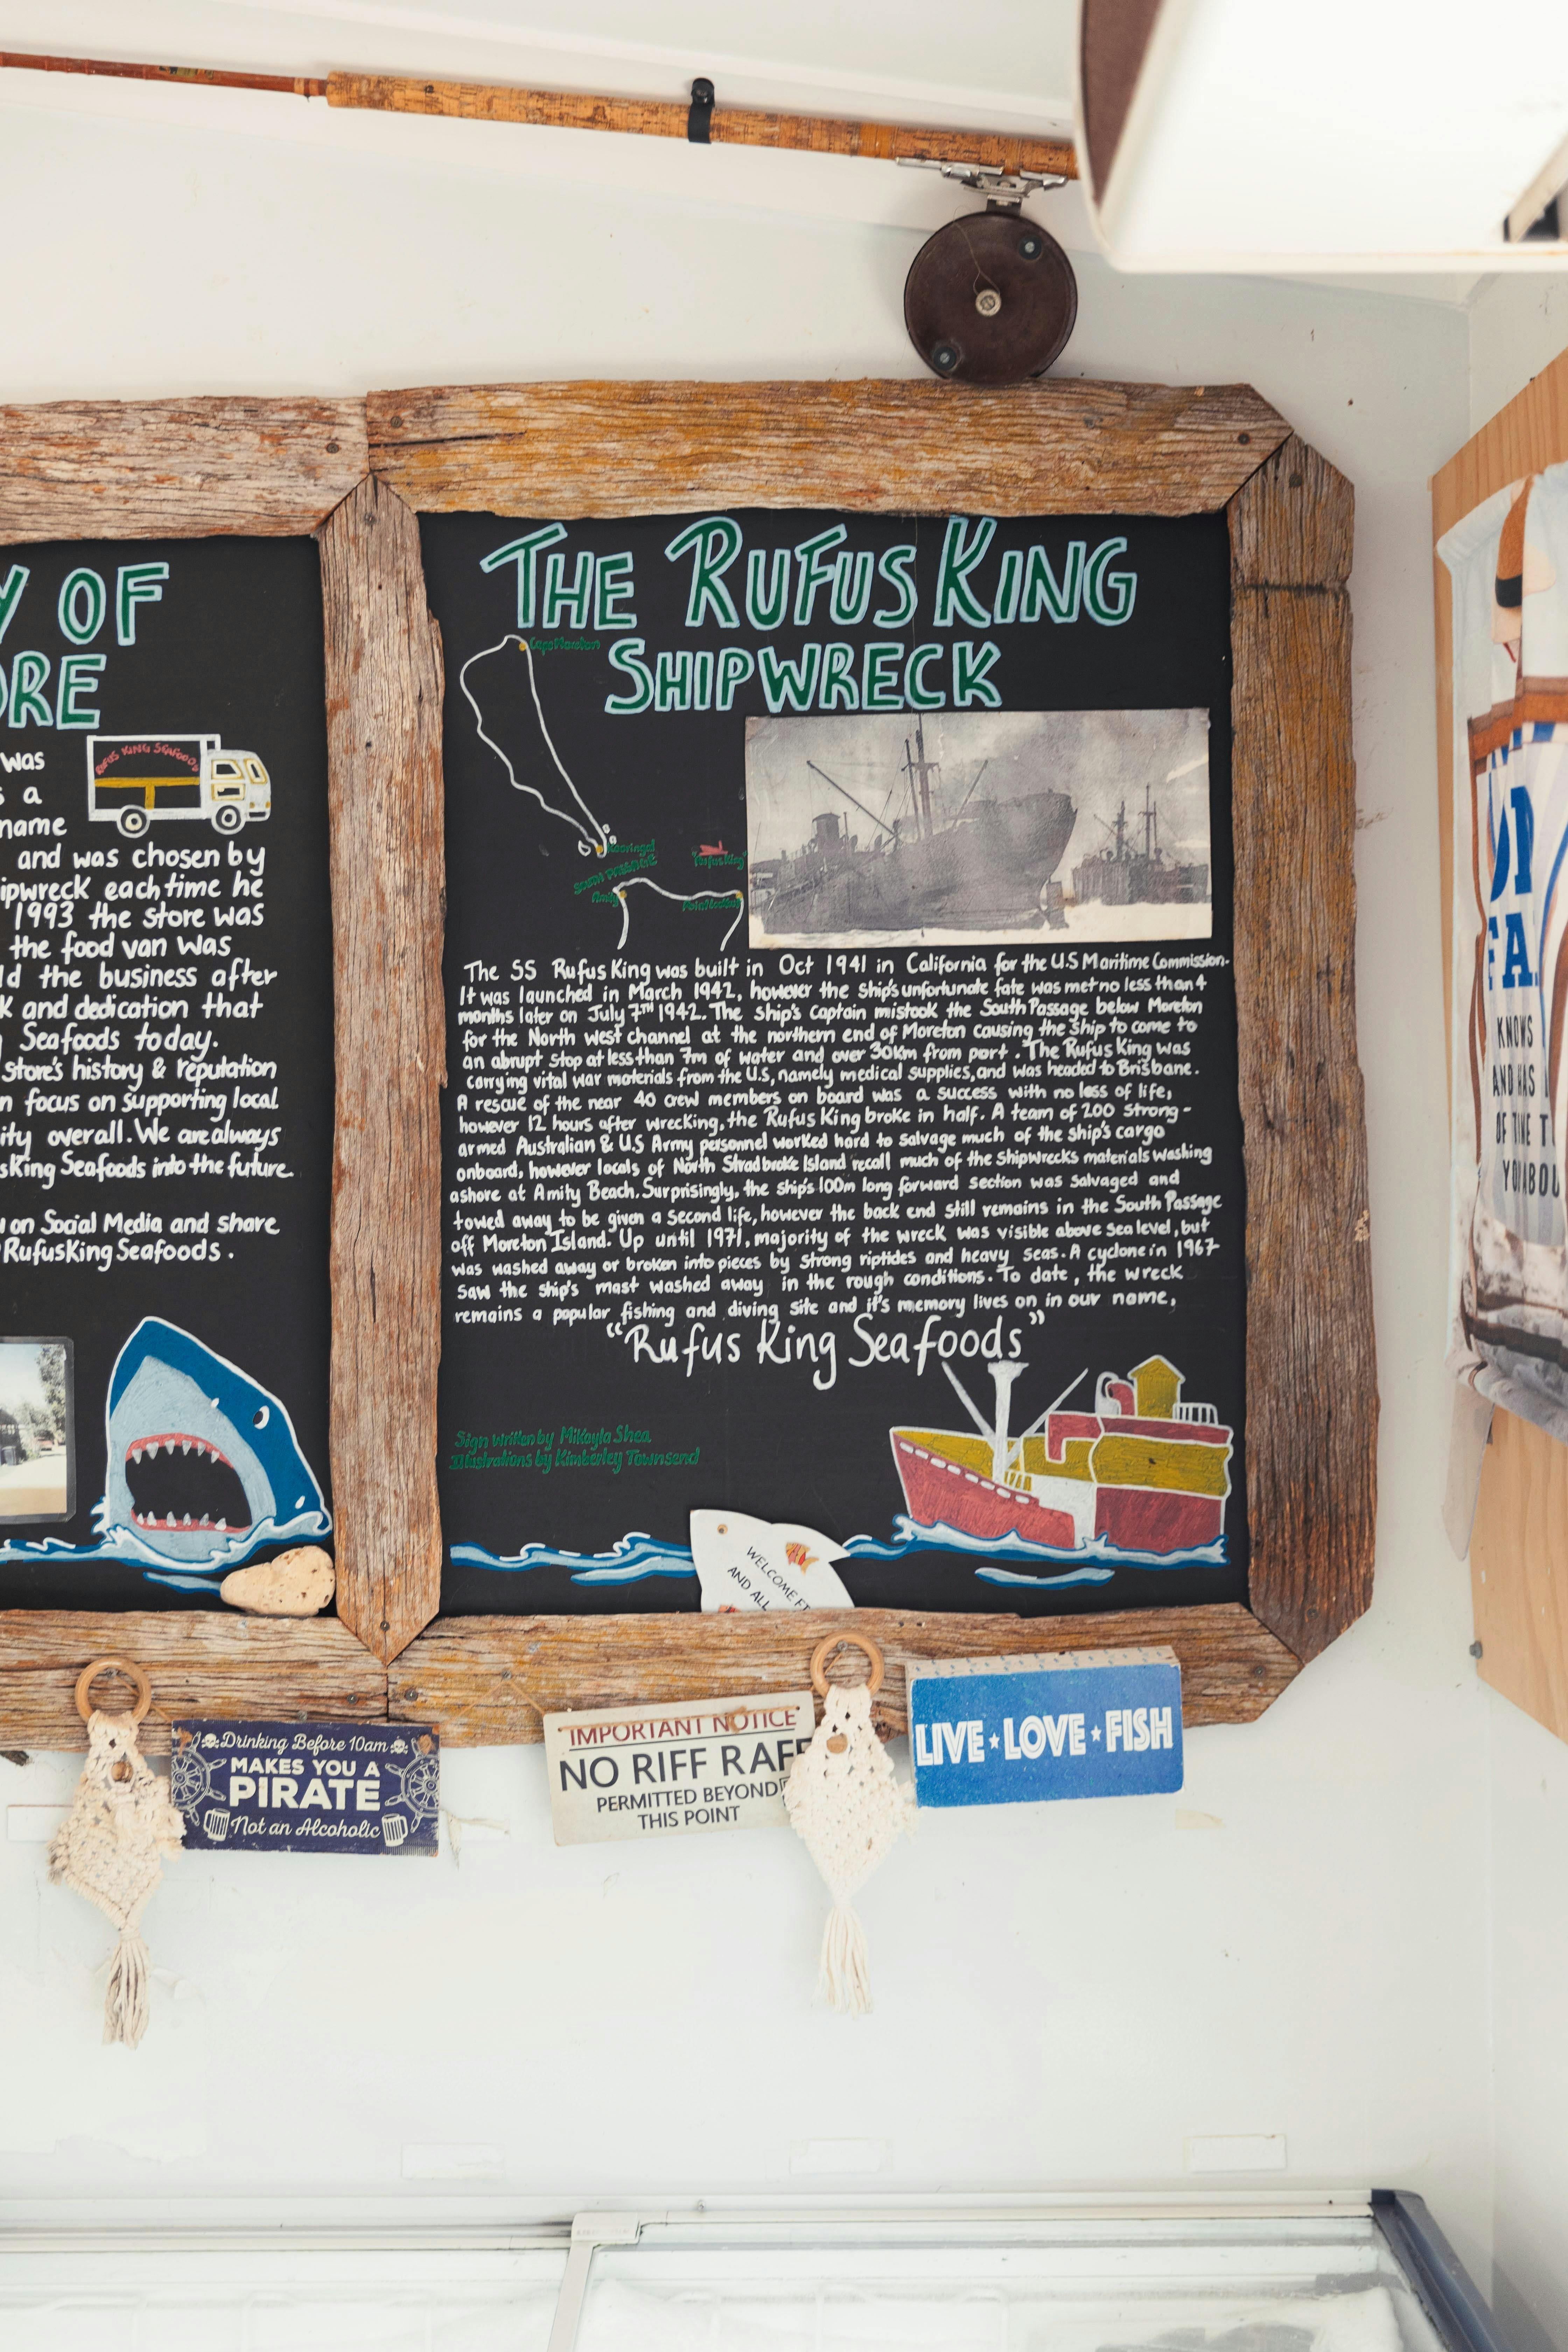 Y OF
ORE
RUFUS KING SEAFOODS
was
s a
name
and was chosen by
ipwreck each time he
1993 the store was
the food van was
ld the business after
k and dedication that
Seafoods today.
store's history & reputation
n focus on supporting local
ity overall. We are always
sKing Seafoods into the future
on Social Media and share
RufusKing Seafoods.
THE RUFUS KING
SHIPWRECK
Cape Moreton
Kooringal
SOUTH PASSAGE
"Rufus King"
Amity
Point Lookout
The SS Rufus King was built in Oct 1941 in California for the U.S Maritime Commission.
It was launched in March 1942, however the ship's unfortunate fate was met no less than 4
months later on July 7TH 1942. The ship's captain mistook the South Passage below Moreton
for the North west channel at the northern end of Moreton causing the ship to come to
an abrupt stop at less than 7m of water and over 30km from port. The Rufus King was
carrying vital war materials from the U.S, namely medical supplies, and was headed to Brisbane.
A rescue of the near 40 crew members on board was a success with no loss of life,
however 12 hours after wrecking, the Rufus King broke in half. A team of 200 strong-
armed Australian & U.S Army personnel worked hard to salvage much of the ship's cargo
onboard, however locals of North Stradbroke Island recall much of the shipwrecks materials washing
ashore at Amity Beach. Surprisingly, the ship's 100m long forward section was salvaged and
towed away to be given a second life, however the back end still remains in the South Passage
off Moreton Island. Up until 1971, majority of the wreck was visible above sea level, but
was washed away or broken into pieces by strong riptides and heavy seas. A cyclone in 1967
saw the ship's mast washed away in the rough conditions. To date, the wreck
remains a popular fishing and diving site and it's memory lives on in our name,
"Rufus King Seafoods"
Sign written by Mikayla Shea
Illustrations by Kimberley Townsend
WELCOME FR
AND ALL
Drinking Before 10am
MAKES YOU A
PIRATE
Not an Alcoholic
IMPORTANT NOTICE
NO RIFF RAFF
PERMITTED BEYOND
THIS POINT
LIVE ★ LOVE ★ FISH
FA
KNOWS
AND HAS
OF TIME T
YOU ABOU